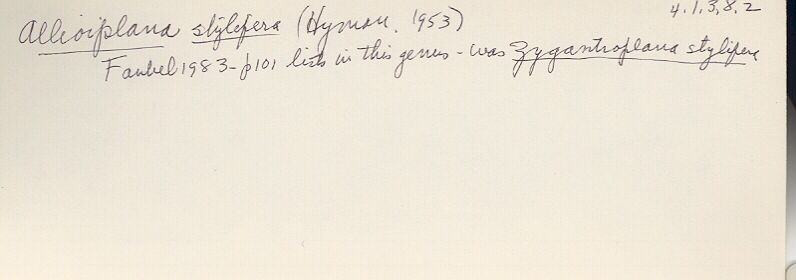 4.1.3,8.2
Allioiplana stylifera (Hyman, 1953)
Faubel 1983 - p101 lists in this genus - was Zygantroplana stylifera